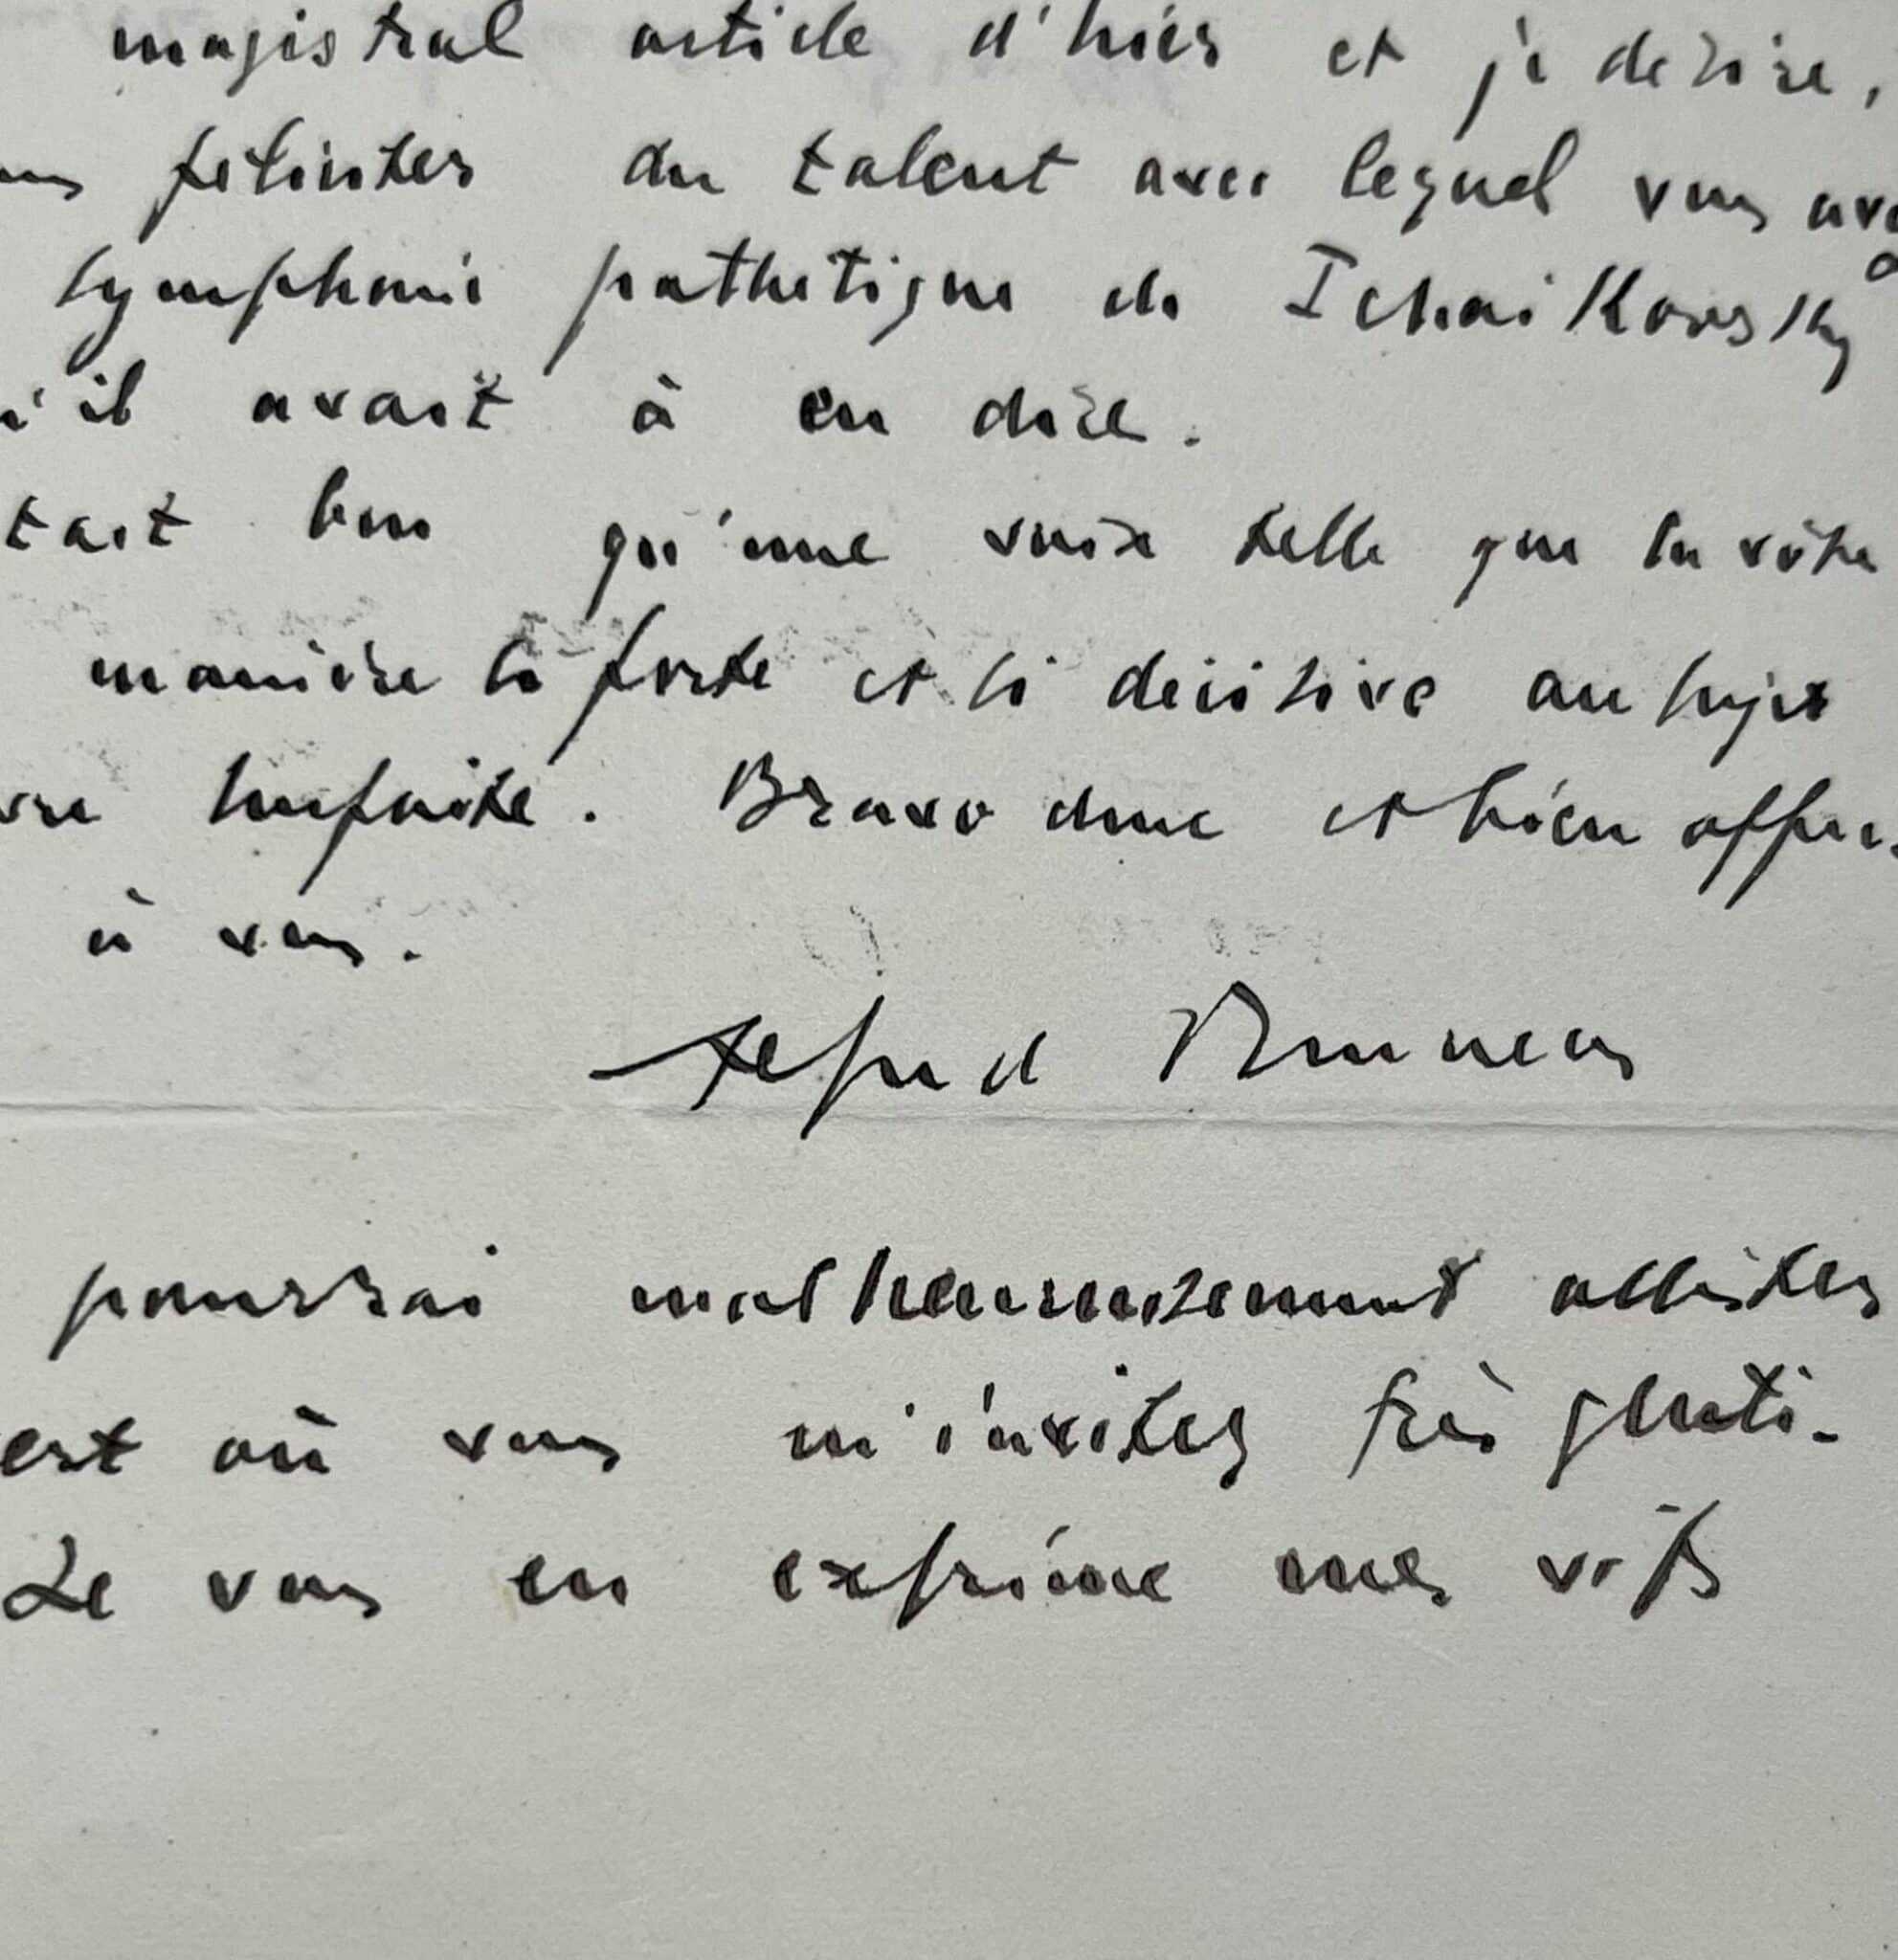 magistral article d'hier et je désire,
féliciter du talent avec lequel vous ave
symphonie pathétique de Tchaïkovsky
'il avait à en dire.
tait bon qu'une voix telle que la vôtre
manière si forte et si décisive au sujet
surfaite. Bravo donc et bien affec-
à vous.
Alfred Bruneau
pourrai malheureusement assister
est où vous m'invitez très genti-
Je vous en exprime mes vifs